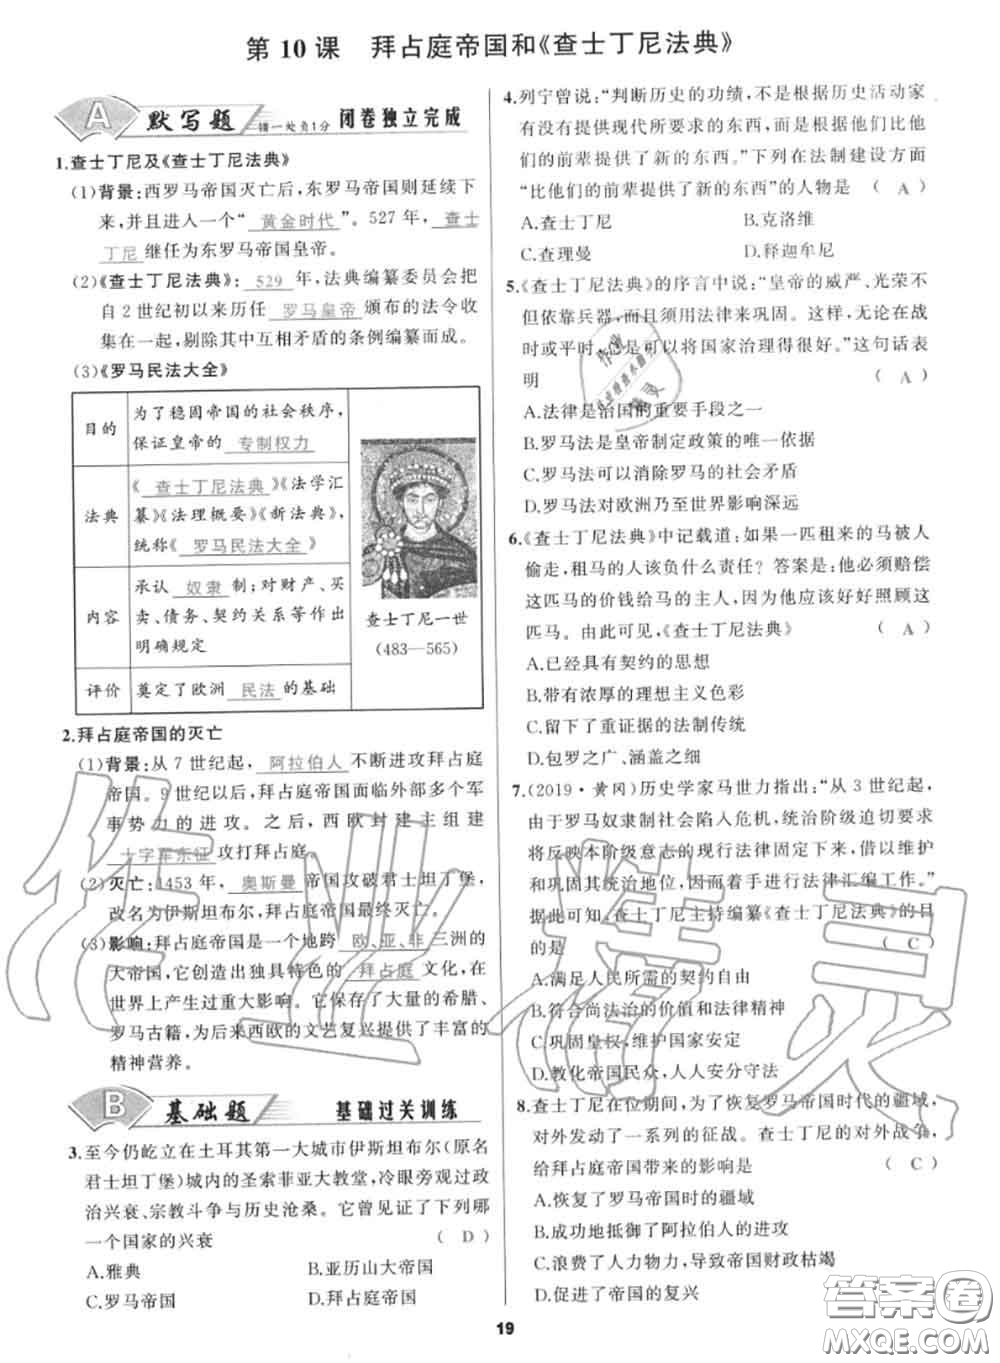 第 10 课 拜占庭帝国和《查士丁尼法典》
A 默写题 错一处负1分 闭卷独立完成
1.查士丁尼及《查士丁尼法典》
(1)背景:西罗马帝国灭亡后,东罗马帝国则延续下
来,并且进入一个“ 黄金时代 ”。527 年, 查士
丁尼 继任为东罗马帝国皇帝。
(2)《查士丁尼法典》: 529 年,法典编纂委员会把
自 2 世纪初以来历任 罗马皇帝 颁布的法令收
集在一起,剔除其中互相矛盾的条例编纂而成。
(3)《罗马民法大全》
目的 为了稳固帝国的社会秩序,
保证皇帝的 专制权力
法典 《 查士丁尼法典 》《法学汇
纂》《法理概要》《新法典》,
统称《 罗马民法大全 》
内容 承认 奴隶 制;对财产、买
卖、债务、契约关系等作出
明确规定
评价 奠定了欧洲 民法 的基础
查士丁尼一世
(483—565)
2.拜占庭帝国的灭亡
(1)背景:从 7 世纪起, 阿拉伯人 不断进攻拜占庭
帝国。9 世纪以后,拜占庭帝国面临外部多个军
事势力的进攻。之后,西欧封建主组建
十字军东征 攻打拜占庭。
(2)灭亡:1453 年, 奥斯曼 帝国攻破君士坦丁堡,
改名为伊斯坦布尔,拜占庭帝国最终灭亡。
(3)影响:拜占庭帝国是一个地跨 欧、亚、非 三洲的
大帝国,它创造出独具特色的 拜占庭 文化,在
世界上产生过重大影响。它保存了大量的希腊、
罗马古籍,为后来西欧的文艺复兴提供了丰富的
精神营养。
B 基础题 基础过关训练
3.至今仍屹立在土耳其第一大城市伊斯坦布尔(原名
君士坦丁堡)城内的圣索菲亚大教堂,冷眼旁观过政
治兴衰、宗教斗争与历史沧桑。它曾见证了下列哪
一个国家的兴衰 ( D )
A.雅典 B.亚历山大帝国
C.罗马帝国 D.拜占庭帝国
4.列宁曾说:“判断历史的功绩,不是根据历史活动家
有没有提供现代所要求的东西,而是根据他们比他
们的前辈提供了新的东西。”下列在法制建设方面
“比他们的前辈提供了新的东西”的人物是 ( A )
A.查士丁尼 B.克洛维
C.查理曼 D.释迦牟尼
5.《查士丁尼法典》的序言中说:“皇帝的威严、光荣不
但依靠兵器,而且须用法律来巩固。这样,无论在战
时或平时,总是可以将国家治理得很好。”这句话表
明 ( A )
A.法律是治国的重要手段之一
B.罗马法是皇帝制定政策的唯一依据
C.罗马法可以消除罗马的社会矛盾
D.罗马法对欧洲乃至世界影响深远
6.《查士丁尼法典》中记载道:如果一匹租来的马被人
偷走,租马的人该负什么责任?答案是:他必须赔偿
这匹马的价钱给马的主人,因为他应该好好照顾这
匹马。由此可见,《查士丁尼法典》 ( A )
A.已经具有契约的思想
B.带有浓厚的理想主义色彩
C.留下了重证据的法制传统
D.包罗之广、涵盖之细
7.(2019·黄冈)历史学家马世力指出:“从 3 世纪起,
由于罗马奴隶制社会陷入危机,统治阶级迫切要求
将反映本阶级意志的现行法律固定下来,借以维护
和巩固其统治地位,因而着手进行法律汇编工作。”
据此可知,查士丁尼主持编纂《查士丁尼法典》的目
的是 ( C )
A.满足人民所需的契约自由
B.符合尚法治的价值和法律精神
C.巩固皇权,维护国家安定
D.教化帝国民众,人人安分守法
8.查士丁尼在位期间,为了恢复罗马帝国时代的疆域,
对外发动了一系列的征战。查士丁尼的对外战争,
给拜占庭帝国带来的影响是 ( C )
A.恢复了罗马帝国时的疆域
B.成功地抵御了阿拉伯人的进攻
C.浪费了人力物力,导致帝国财政枯竭
D.促进了帝国的复兴
19
作业精灵
答案圈
MXQE.COM